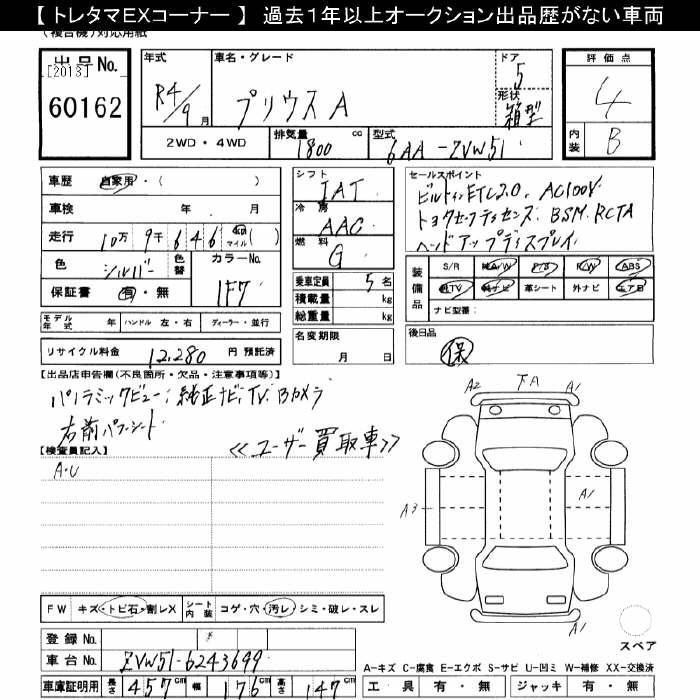 【 トレタマEXコーナー 】 過去１年以上オークション出品歴がない車両
(複合機)対応用紙
出品No.
[2013]
60162
年式
R4/9月
車名・グレード
プリウス A
ドア
5
形状
箱型
2WD・4WD
排気量
1800 cc
型式
6AA-ZVW51
評価点
4
内装
B
車歴 自家用・( )
車検 年 . 月
走行 10万 9千 646 km マイル ( )
色 シルバー 色替 カラーNo. 1F7
保証書 有・無
モデル年式 年 ハンドル 左・右 ディーラー・並行
リサイクル料金 12,280 円 預託済
シフト
IAT
冷房
AAC
燃料
G
乗車定員 5 名
積載量 kg
総重量 kg
名変期限
月 日
セールスポイント
ビルトインETC2.0、AC100V
トヨタセーフティセンス、BSM、RCTA
ヘッドアップディスプレイ
装備品
S/R 純A/W P/S P/W ABS
純TV 純ナビ 革シート 外ナビ エアB
ナビ型番:
後日品
保
【出品店申告欄(不良箇所・欠品・注意事項等)】
パノラミックビュー、純正ナビ、TV、Bカメラ
右前パワーシート
≪ユーザー買取車≫
【検査員記入】
A・U
FW キズ・トビ石・割レX シート内装 コゲ・穴・汚レ・シミ・破レ・スレ
登録No.
車台No. ZVW51-6243699
車庫証明用 長さ 457cm 幅 176cm 高さ 147cm
A2 下A A1
A3 A1
A1
スペア
A-キズ C-腐食 E-エクボ S-サビ U-凹ミ W-補修 XX-交換済
工具 有・無 ジャッキ 有・無